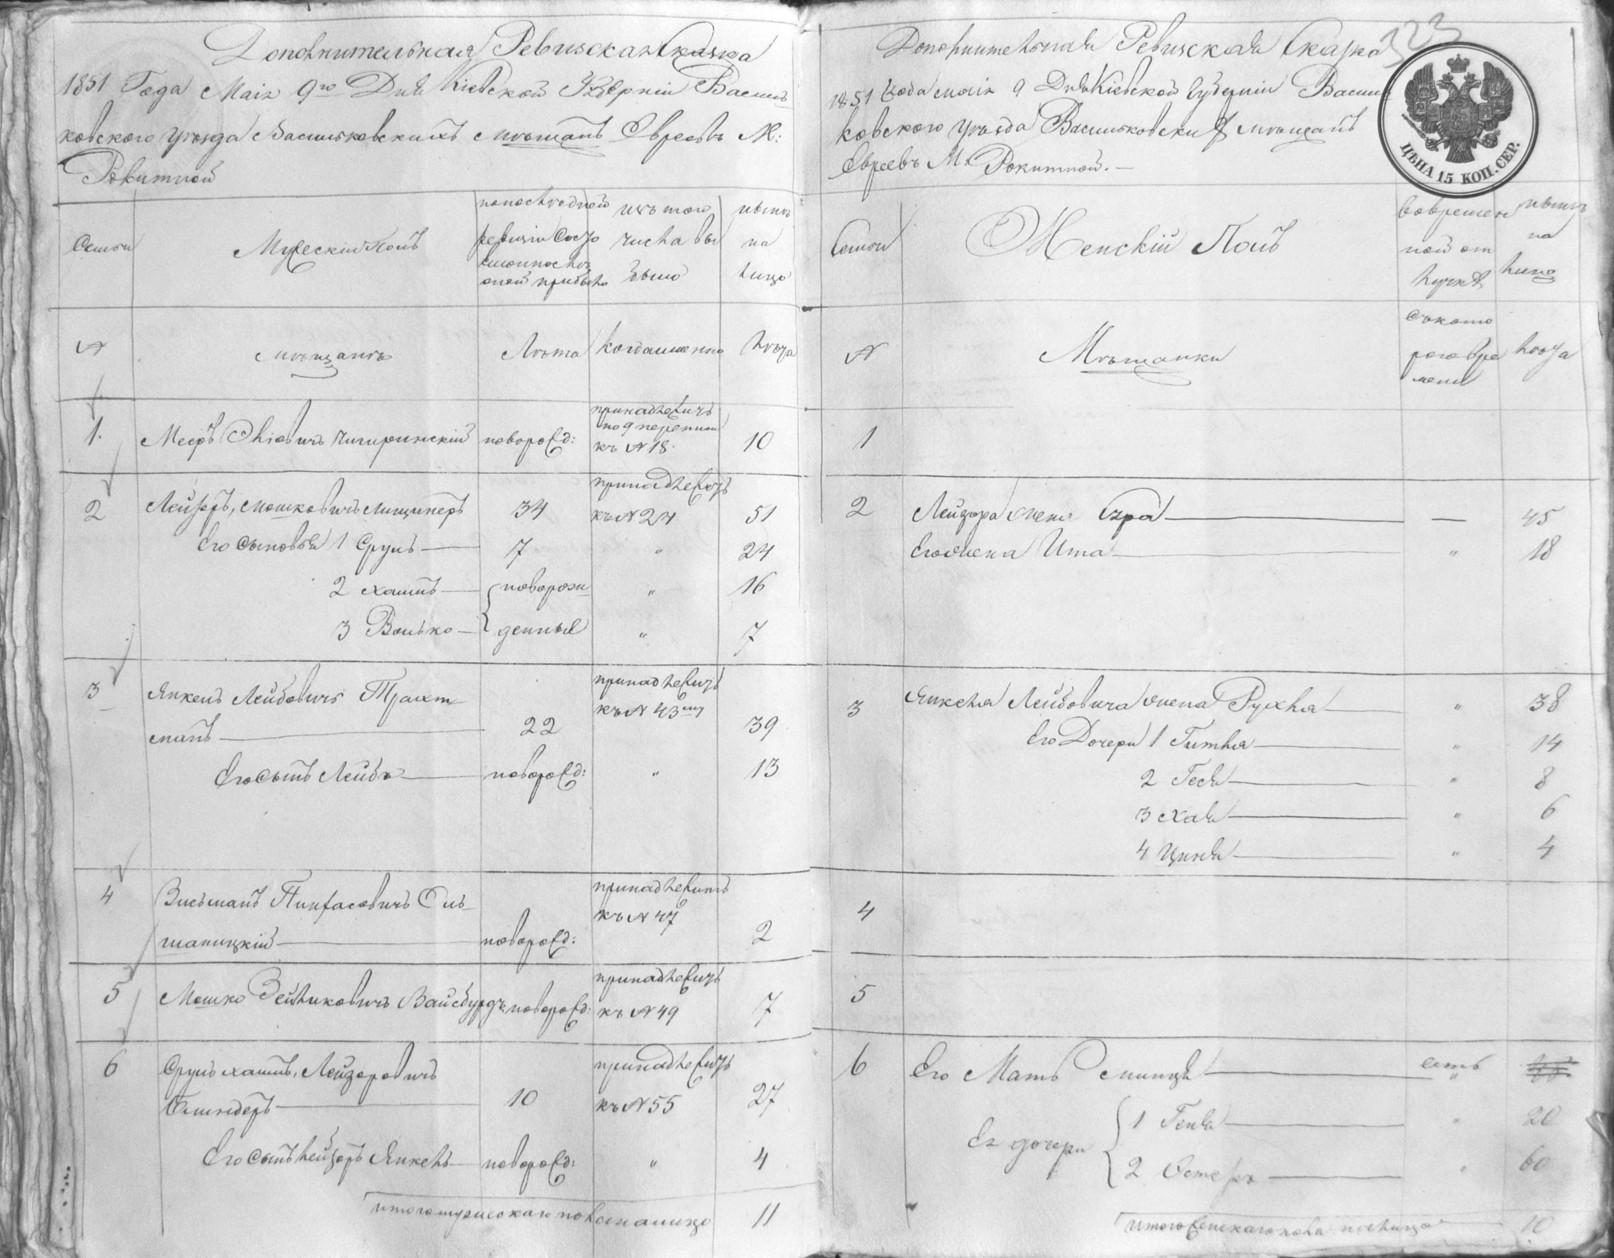 Дополнительная Ревизская Сказка
1851 Года Маія 9го Дня Кіевской Губерніи Василь
ковского уѣзда Васильковскихъ мѣщанъ Евреевъ М:
Рокитной
Семьи
Мужескій Полъ
по последней
ревизіи состо
яло и после
оной прибыло
изъ того
числа вы
было
нынѣ
на
лицо
№
мѣщанъ
Лѣта
когда именно
лѣта
1.
Меер Чигиринскій
новорожд:
принадлежитъ
къ № 18.
10
2
Лейзоръ Мошковичъ Лищинеръ
34
принадлежитъ
къ № 24
51
Его сыновья 1 Сруль
7
"
24
2 Хаимъ
новорож
"
16
3 Волько
денные
"
7
3
Янкель Лейбовичъ Трахт
манъ
22
принадлежитъ
къ № 43му
39
Его сынъ Лейба
новорожд:
"
13
4
Зисьманъ Пинхасовичъ Оль
шаницкій
новорожд:
принадлежитъ
къ № 47
2
5
Мошко Зейликовичъ Вайсбурдъ
новорожд:
принадлежитъ
къ № 49
7
6
Сруль Хаимъ Лейзоровичъ
10
принадлежитъ
къ № 55
27
Его сынъ Лейзоръ Янкель
новорожд:
"
4
Итого мужескаго пола на лицо
11
323
Дополнительная Ревизская Сказка
1851 Года маія 9 Дня Кіевской Губерніи Василь
ковского уѣзда Васильковских мѣщанъ
Евреевъ М. Рокитной.
ЦѢНА 15 КОП. СЕР.
Семьи
Женскій Полъ
во времен
ной от
лучкѣ
нынѣ
на
лицо
№
Мѣщанки
съ кото
рого вре
мени
лѣта
1
2
Лейзора жена Сура
45
Его жена Ита
"
18
3
Янкеля Лейбовича жена Рухля
"
38
Его Дочери 1 Гитля
"
14
2 Геся
"
8
3 Хая
"
6
4 Циня
"
4
4
5
6
Его Мать
Ея дочери
1 Геня
"
20
2 Естеръ
"
Итого женскаго пола на лицо
10